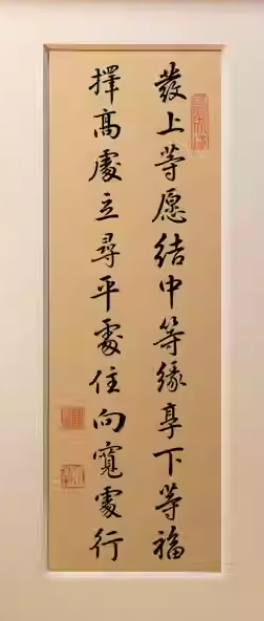 發上等愿结中等緣享下等福
擇高處立尋平處住向寬處行